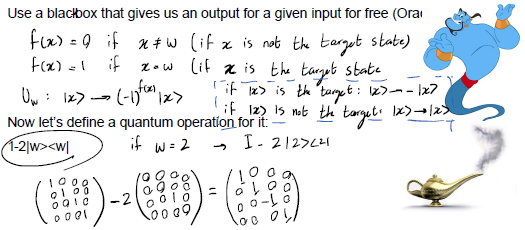 Use a blackbox that gives us an output for a given input for free (Ora
f(x) = 0 if x ≠ w (if x is not the target state)
f(x) = 1 if x = w (if x is the target state
U_w : |x> → (-1)^f(x) |x> if |x> is the target : |x> → - |x>
if |x> is not the target: |x> → |x>
Now let's define a quantum operation for it:
1-2|w><w| if w = 2 → I - 2|2><2|
1 0 0 0 0 0 0 0 1 0 0 0
0 1 0 0 - 2 0 0 0 0 = 0 1 0 0
0 0 1 0 0 0 1 0 0 0 -1 0
0 0 0 1 0 0 0 0 0 0 0 1